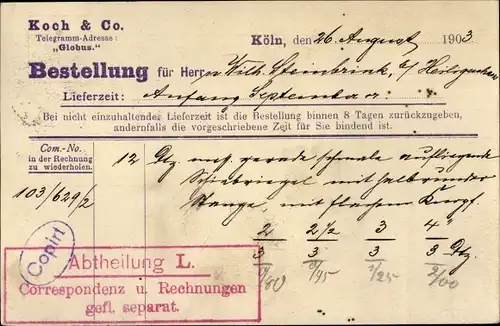 Koch & Co.
Telegramm-Adresse:
„Globus."
Köln, den 26 August 1903
Bestellung für Herrn Wilh. Steinbrink, a/
Lieferzeit: Anfang September
Bei nicht einzuhaltender Lieferzeit ist die Bestellung binnen 8 Tagen zurückzugeben,
andernfalls die vorgeschriebene Zeit für Sie bindend ist.
Com.-No.
in der Rechnung
zu wiederholen.
12 Dtz gerade schmale aufliegende
103/629/2
Schieberiegel mit halbrunder
Stange, mit flachem Knopf
2 2½ 3 4"
3 3 3 3 Dtz.
1/80 1/95 2/25 2/00
Copirt
Abtheilung L.
Correspondenz u. Rechnungen
gefl. separat.